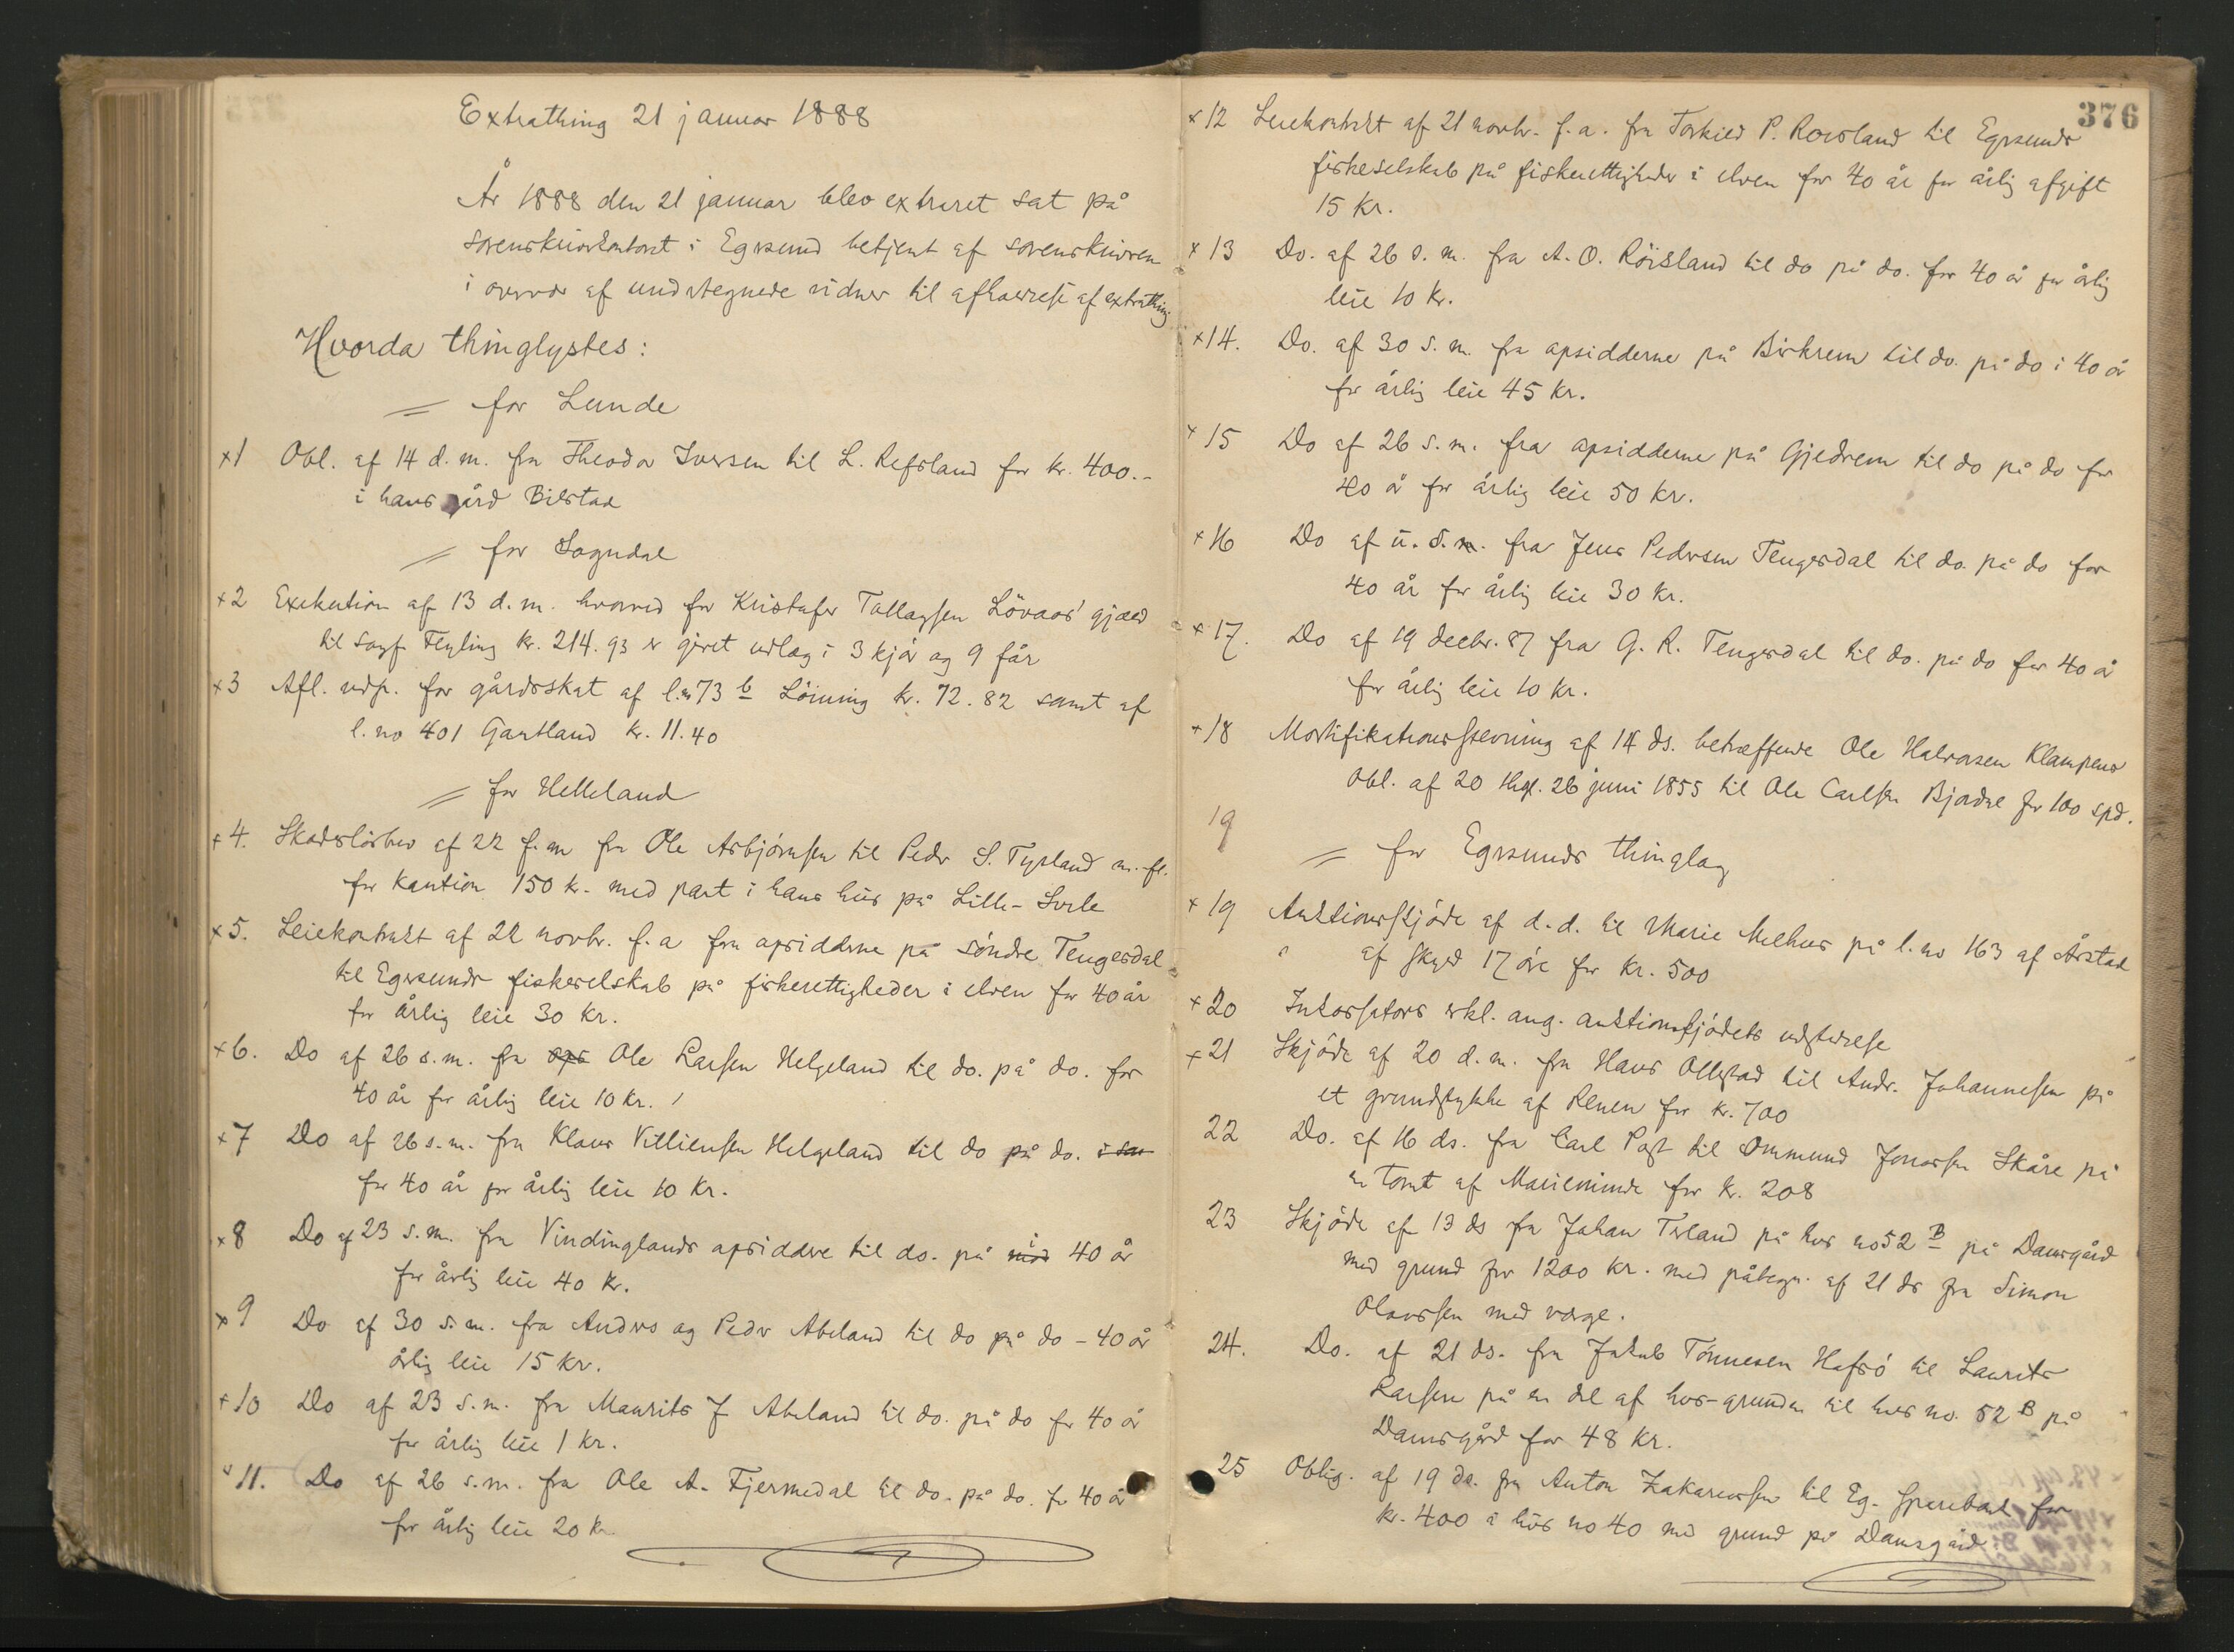 Extrathing 21 januar 1888
År 1888 den 21 januar blev extraret sat på
sorenskriverkontoret i Egersund betjent af sorenskriveren
i overvær af undertegnede vidner til afholdelse af extrathing
Hvorda thinglystes:
= for Lunde
x1 Obl. af 14 d. m. fra Theodor Iversen til L. Refsland for kr. 400.-
i hans gård Bilstad
= for Sogndal
x2 Exekution af 13 d. m. hvorved for Kristofer Tollagsen Lövaas' gjæld
til sagf. Feyling kr. 214.93 er givet udlæg i 3 kjør og 9 får
x3 Afl. udp. for gårdsskat af l. no 73 b Löining kr. 72.82 samt af
l. no 401 Gartland kr. 11.40
= for Helleland
x4. Skadesløsbrev af 22 f. m. fra Ole Asbjørnsen til Peder S. Tysland m. fl.
for kaution 150 k. med pant i hans hus på Lille-Svele
x5. Leiekontrakt af 22 novbr. f. a. fra opsidderne på søndre Tengesdal
til Egersunds fiskeselskab på fiskerettigheder i elven for 40 år
for årlig leie 30 kr.
x6. Do af 26 s. m. fra ops Ole Larsen Helgeland til do. på do. for
40 år for årlig leie 10 kr.
x7 Do af 26 s. m. fra Klaus Villiensen Helgeland til do på do.
for 40 år for årlig leie 10 kr.
x8 Do af 23 s. m. fra Vindinglands opsiddere til do. på i 40 år
for årlig leie 40 kr.
x9 Do af 30 s. m. fra Anders og Peder Abeland til do på do - 40 år
årlig leie 15 kr.
x10 Do af 23 s. m. fra Maurits J Abeland til do. på do for 40 år
for årlig leie 1 kr.
x11. Do af 26 s. m. fra Ole A. Fjermedal til do. på do. for 40 år
for årlig leie 20 kr.
376
x12 Leiekontrakt af 21 novbr. f. a. fra Torkild P. Rovsland til Egersunds
fiskeselskab på fiskerettigheder i elven for 40 år for årlig afgift
15 kr.
x13 Do. af 26 s. m. fra A. O. Röisland til do på do. for 40 år for årlig
leie 10 kr.
x14. Do. af 30 s. m. fra opsidderne på Birkrem til do. på do i 40 år
for årlig leie 45 kr.
x15 Do af 26 s. m. fra opsidderne på Gjedrem til do på do for
40 år for årlig leie 50 kr.
x16 Do af u. s. m. fra Jens Pedersen Tengesdal til do. på do for
40 år for årlig leie 30 kr.
x17. Do af 19 decbr. 87 fra G. R. Tengesdal til do. på do for 40 år
for årlig leie 10 kr.
x18 Mortifikationsstevning af 14 ds. betræffende Ole Halvorsen Klampens
obl. af 20 thgl. 26 juni 1855 til Ole Carlsen Bjordal for 100 spd.
19
= for Egersunds thinglag
x19 Auktionsskjøde af d. d. til Marie Melhus på l. no 163 af Årstad
af skyld 17 øre for kr. 500
x20 Inkassators erkl. ang. auktionsskjødets udstedelse
x21 Skjøde af 20 d. m. fra Hans Ollestad til Andr. Johannesen på
et grundstykke af Renen for kr. 700
22 Do. af 16 ds. fra Carl Post til Ommund Jonassen Skåre på
en tomt af Marieminde for kr. 208
23 Skjøde af 13 ds fra Johan Terland på hus no 52 B på Damsgård
med grund for 1200 kr. med påtegn. af 21 ds fra Simon
Olaussen med værge.
24. Do. af 21 ds. fra Jakob Tönnesen Hafsö til Laurits
Larsen på en del af hus-grunden til hus no. 52 B på
Damsgård for 48 kr.
25 Oblig. af 19 ds. fra Anton Zakariassen til Eg. sparebank for
kr. 400 i hus no 40 med grund på Damsgård.